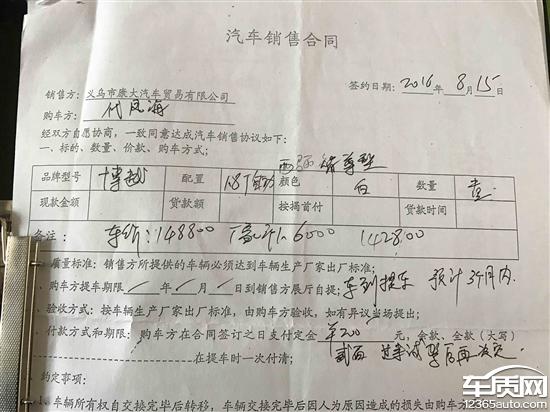 汽车销售合同
签约日期: 2016年 8月15日
销售方: 义乌市康大汽车贸易有限公司
购车方: 代风海
经双方自愿协商，一致同意达成汽车销售协议如下：
一、标的、数量、价款、购车方式；
品牌型号 博越 配置 1.8T 颜色 白 数量 壹
现款金额 贷款额 按揭首付 贷款时间
备注： 车价：148800 6000 142800
质量标准：销售方所提供的车辆必须达到车辆生产厂家出厂标准；
购车方提车期限 年 月 日到销售方展厅自提； 车到提车 预计3个月内
验收方式：按车辆生产厂家出厂标准，由购车方验收，如有异议当场提出；
付款方式和期限：购车方在合同签订之日支付定金 ¥200 元，余款、全款（大写）
贰百 后再
在提车时一次付清；
约定事项：
车辆所有权自交接完毕后转移，车辆交接完毕后因人为原因造成的损失由购车方
车质网
12365auto.com